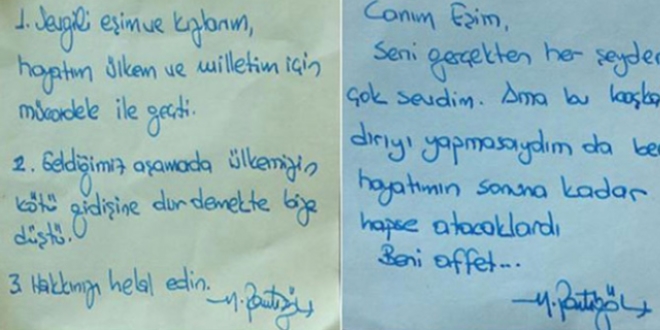 1. Sevgili eşim ve kızlarım,
hayatım ülkem ve milletim için
mücadele ile geçti.
2. Geldiğimiz aşamada ülkemizin
kötü gidişine dur demekte bize
düştü.
3. Hakkınızı helal edin.
Canım Eşim,
Seni gerçekten her şeyde
çok sevdim. Ama bu başka
dırıyı yapmasaydım da be
hayatımın sonuna kadar
hapse atacaklardı
Beni affet...